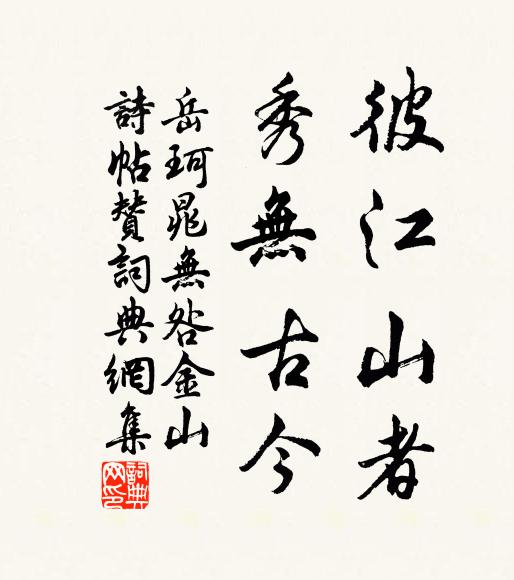 彼江山者
秀無古今
岳珂晁無咎金山
詩帖贊詞典網集
詞典网印